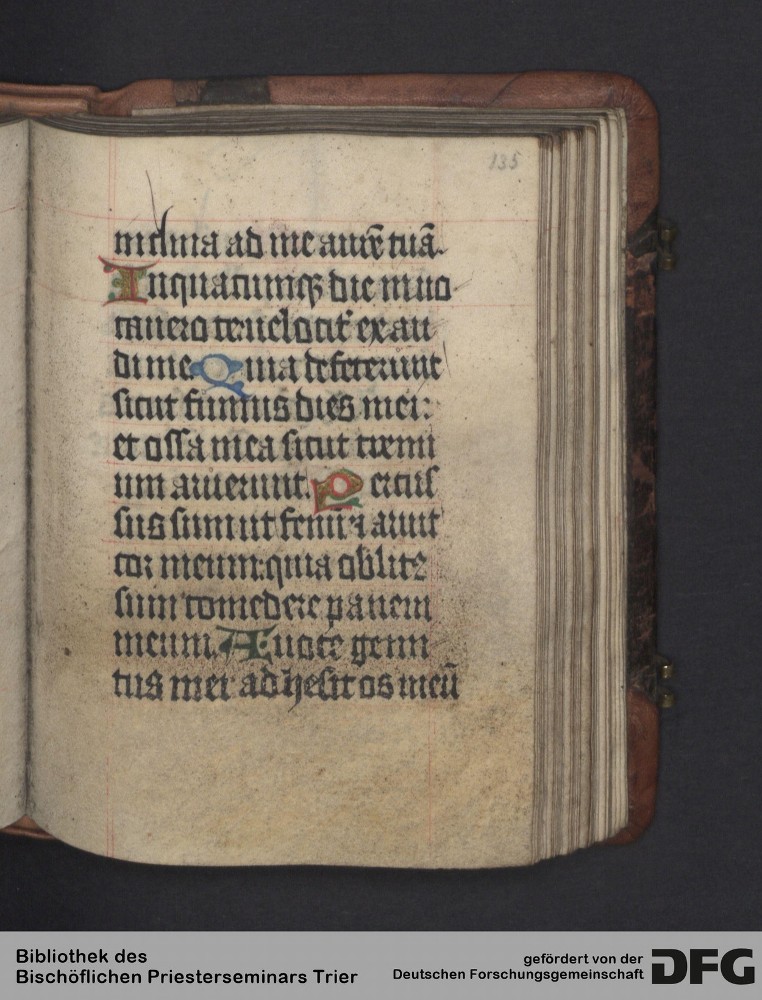 135
inclina ad me aurē tuā.
In quacumqꝫ die inuo
cauero te uelocit̉ exau
di me. Quia defecerunt
sicut fumus dies mei:
et ossa mea sicut cremi
um aruerunt. Percus
sus sum ut fenū ⁊ aruit
cor meum: quia oblitꝰ
sum comedere panem
meum. A uoce gemi
tus mei adhesit os meū
Bibliothek des
Bischöflichen Priesterseminars Trier
gefördert von der
Deutschen Forschungsgemeinschaft
DFG